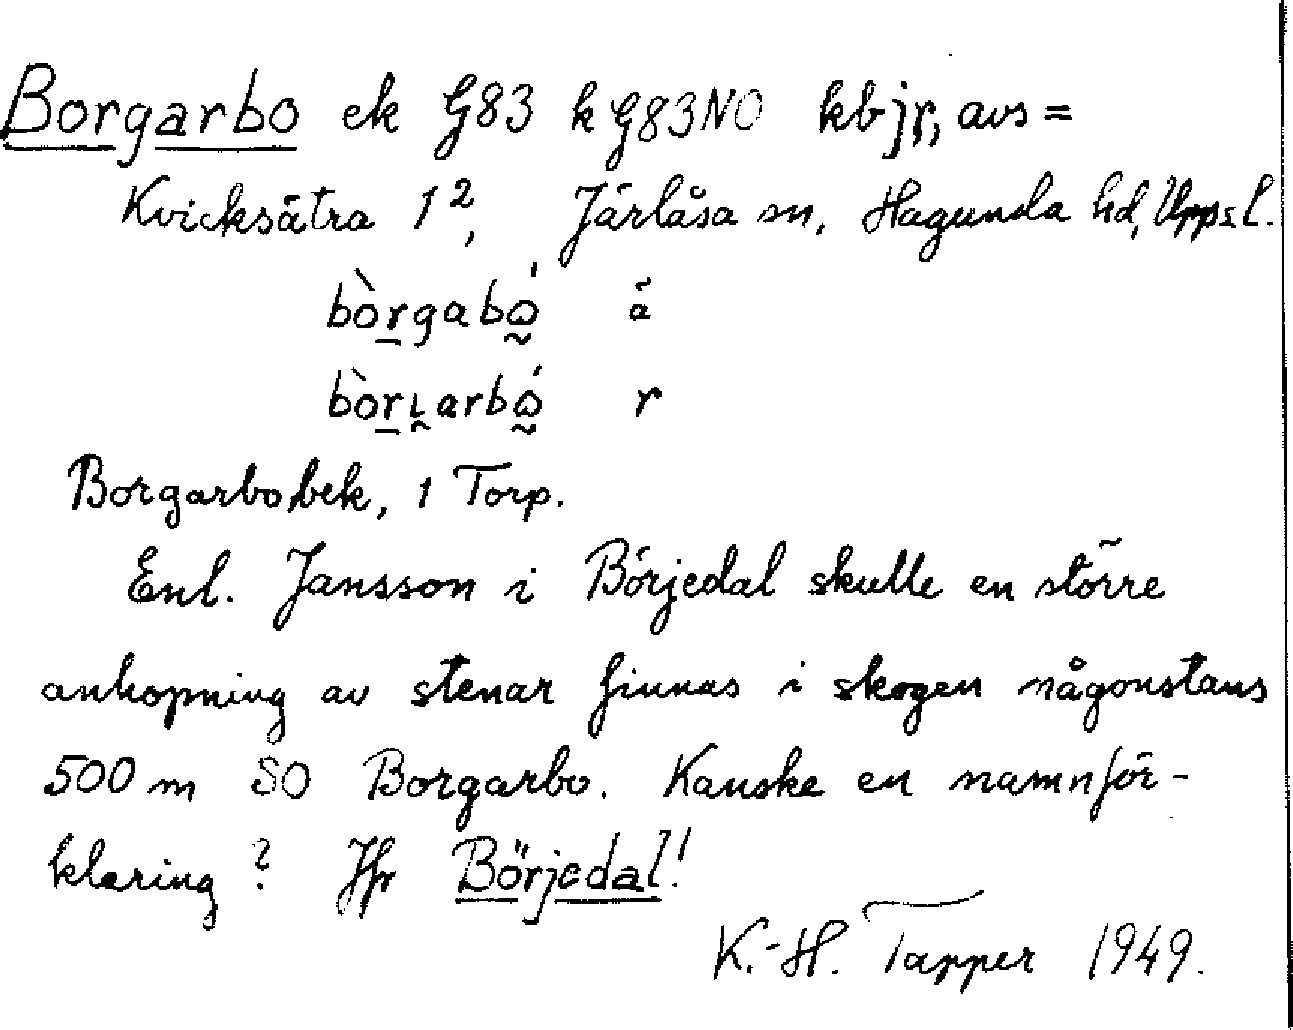 Borgarbo ek G83 k G83NO kbjr, avs =
Kvicksätra 1², Järlåsa sn, Hagunda hd, Uppsl.
bòrgabó̰ ā
bòrɩarbó̰ r
Borgarbo, bek, 1 Torp.
Enl. Jansson i Börjedal skulle en större
anhopning av stenar finnas i skogen någonstans
500 m SO Borgarbo. Kanske en namnför-
klaring? Jfr Börjedal!
K.-H. Tapper 1949.